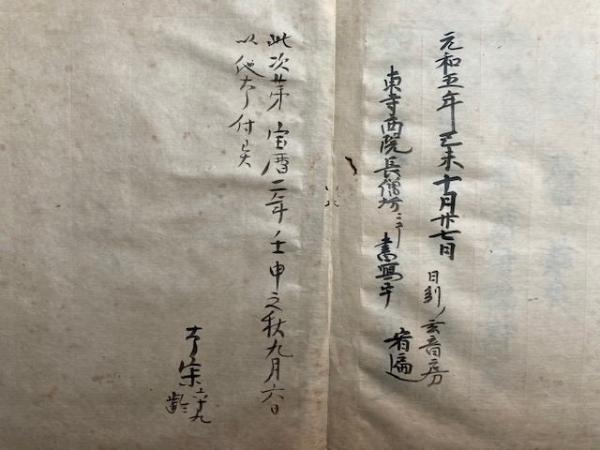 元和五年己未十月廿七日
東寺西院長僧坊ニテ書寫畢
日剅ノ玄音房
宥遍
此次第宝暦二年壬申之秋九月六日
以他本付
六十九
齡